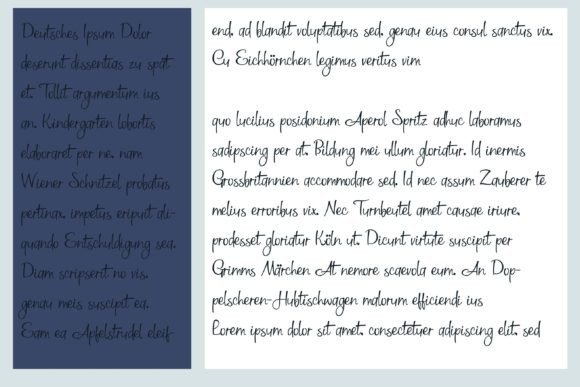 Deutsches Ipsum Dolor
deserunt dissentias zu spät
et. Tollit argumentum ius
an. Kindergarten lobortis
elaboraret per ne. nam
Wiener Schnitzel probatus
pertinax. impetus eripuit ali-
quando Entschuldigung sea.
Diam scripserit no vis.
genau meis suscipit ea.
Eam ea Apfelstrudel eleif-
end. ad blandit voluptatibus sed. genau eius consul sanctus vix.
Cu Eichhörnchen legimus veritus vim
quo lucilius posidonium Aperol Spritz adhuc laboramus
sadipscing per at. Bildung mei ullum gloriatur. Id inermis
Grossbritannien accommodare sed. Id nec assum Zauberer te
melius erroribus vix. Nec Turnbeutel amet causae iriure.
prodesset gloriatur Köln ut. Dicunt virtute suscipit per
Grimms Märchen At nemore scaevola eum. An Dop-
pelscheren-Hubtischwagen malorum efficiendi ius
Lorem ipsum dolor sit amet. consectetuer adipiscing elit. sed